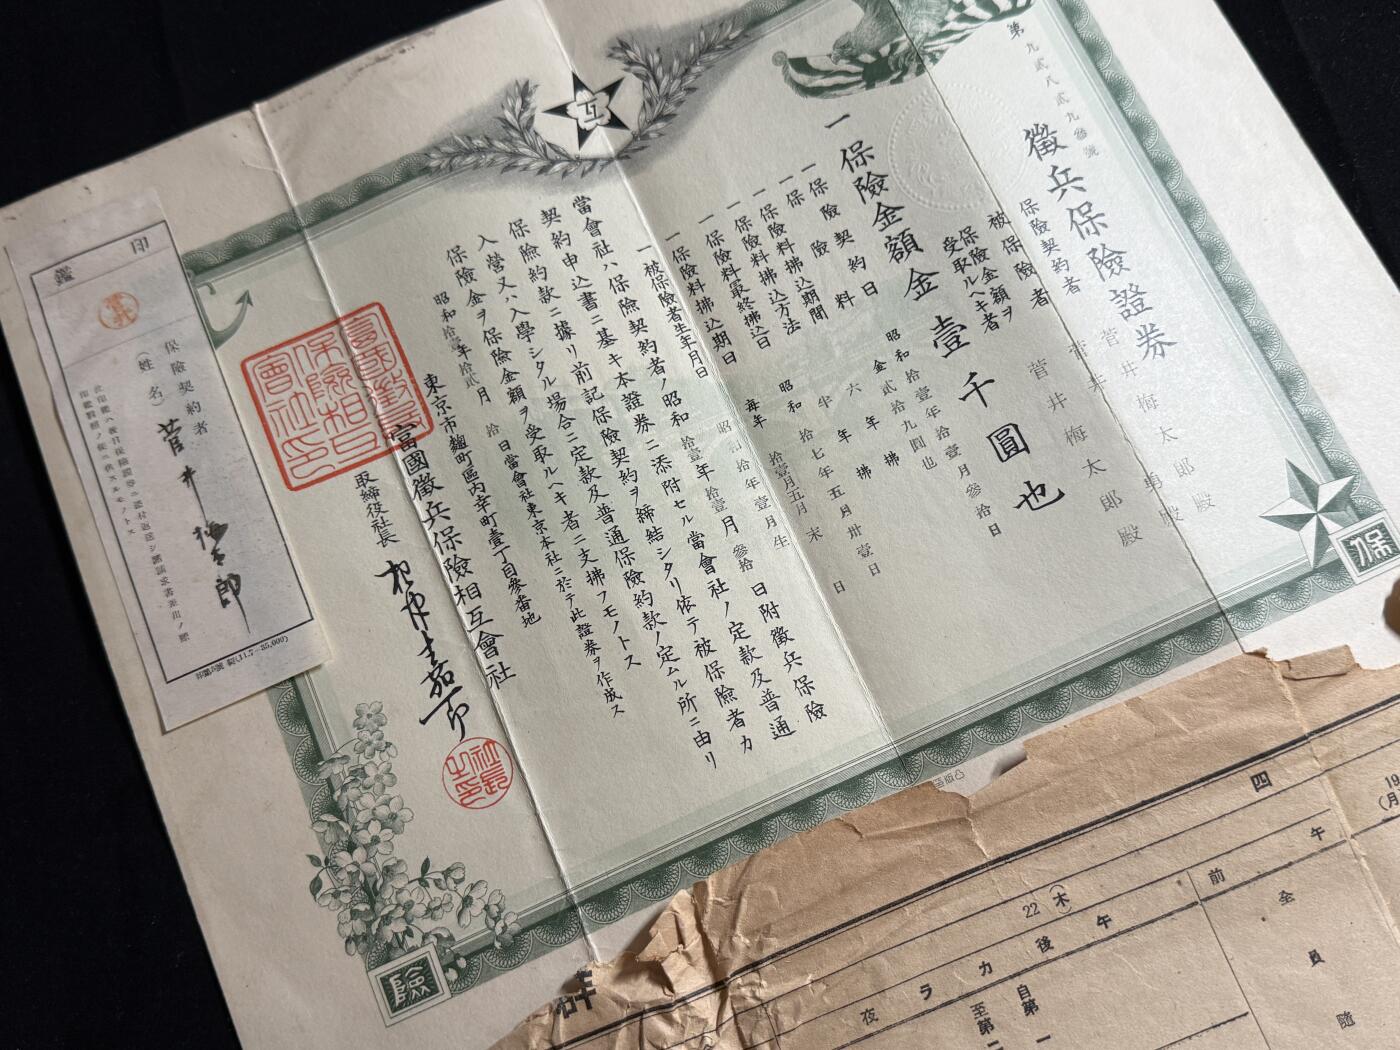 第九貳八貳九參號
徵兵保險證券
保險契約者 菅井梅太郎殿
被保險者 菅井勇殿
保險金額ヲ受取ルヘキ者 菅井梅太郎殿
一保險金額金壹千圓也
一保險契約日 昭和拾壹年拾壹月參拾日
一保險料 金貳拾九圓也
一保險料拂込期間 六年
一保險料拂込方法 年拂
一保險料最終拂込日 昭和拾七年五月卅壹日
一保險料拂込期日 每年 拾壹月五月末日
一被保險者生年月日 昭和拾年壹月生
當會社ハ保險契約者ノ昭和拾壹年拾壹月參拾日附徵兵保險
契約申込書ニ基キ本證券ニ添附セル當會社ノ定款及普通
保險約款ニ據リ前記保險契約ヲ締結シタリ依テ被保險者カ
入營又ハ入學シタル場合ニ定款及普通保險約款ノ定ムル所ニ由リ
保險金ヲ保險金額ヲ受取ルヘキ者ニ支拂フモノトス
昭和拾壹年拾貳月拾日當會社東京本社ニ於テ此證券ヲ作成ス
東京市麴町區內幸町壹丁目參番地
富國徵兵保險相互會社
取締役社長
富國徵兵保險相互會社印
社長之印
互
保
險
印鑑
保險契約者
(姓名)
菅井梅太郎
四
午前
22
(木)
午後
カラ
夜
全員隨
自第一
至第二